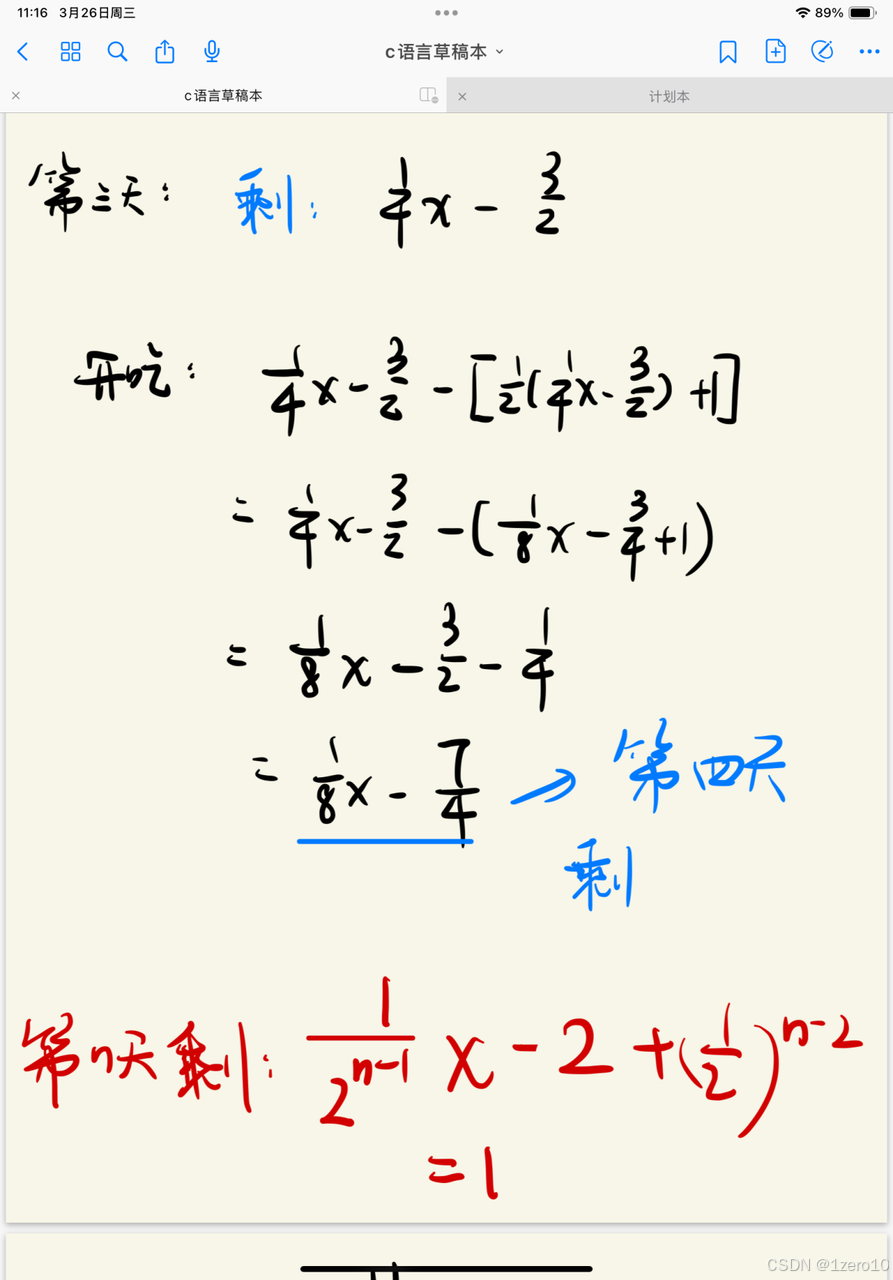 11:16 3月26日周三 89%
c语言草稿本
c语言草稿本 计划本
第三天: 剩: 1/4 x - 3/2
开吃: 1/4 x - 3/2 - [1/2(1/4 x - 3/2) + 1]
= 1/4 x - 3/2 - (1/8 x - 3/4 + 1)
= 1/8 x - 3/2 - 1/4
= 1/8 x - 7/4 → 第四天
剩
第n天剩: 1/2^(n-1) x - 2 + (1/2)^(n-2)
= 1
CSDN @1zero10